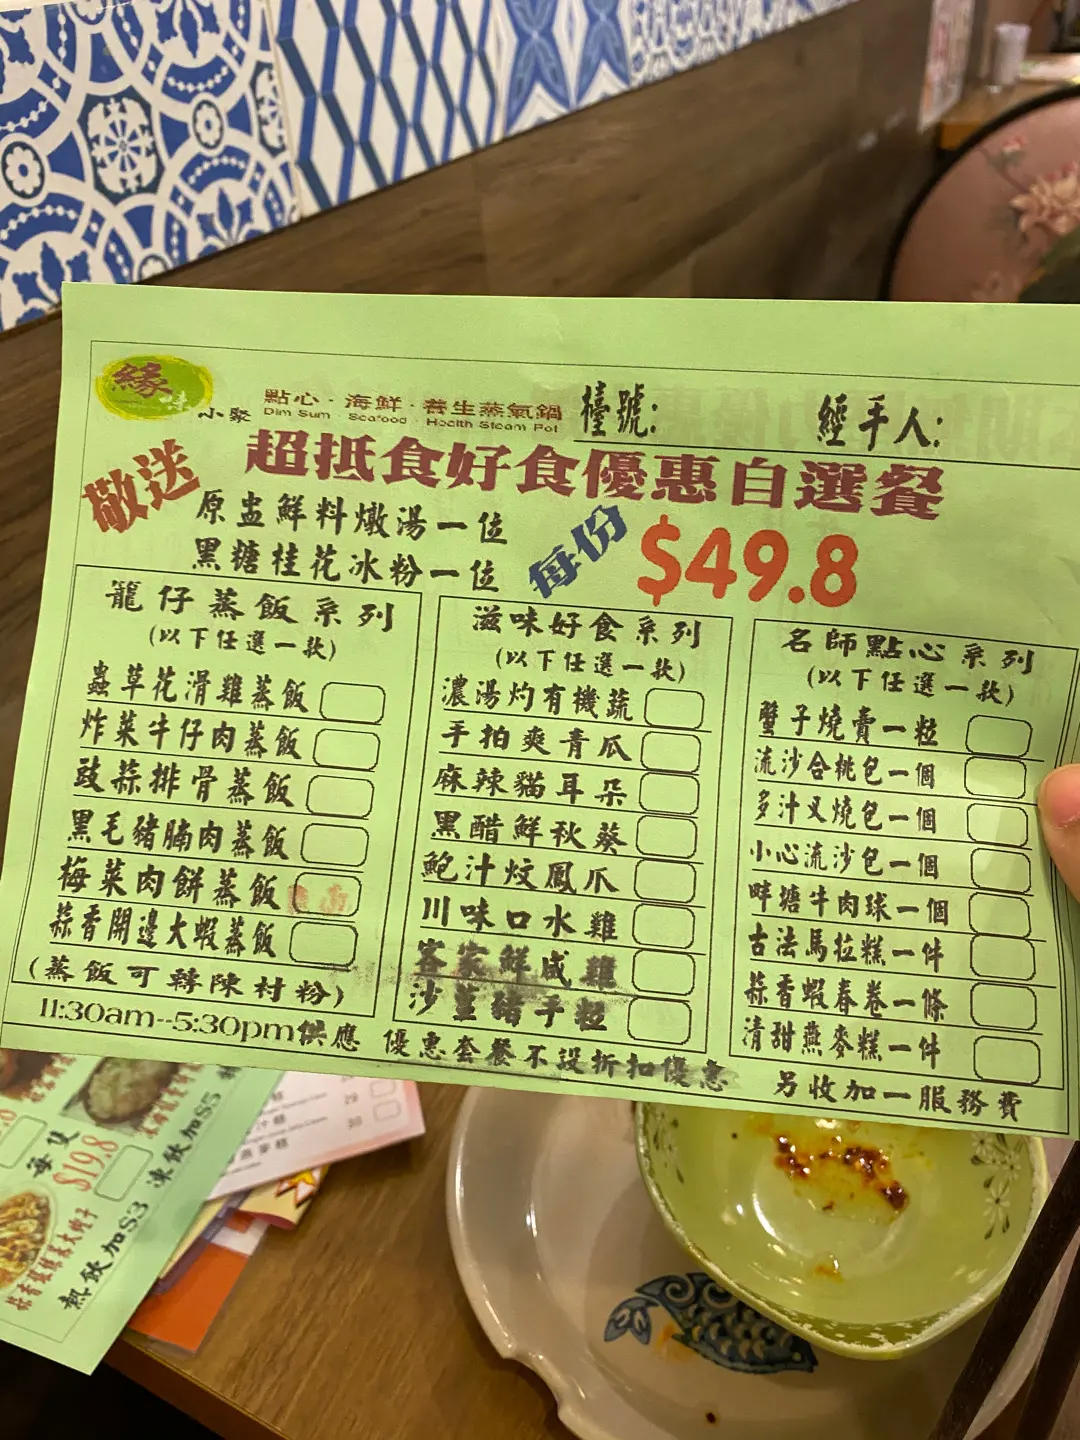 緣
小聚
點心·海鮮·養生蒸氣鍋
Dim Sum · Seafood · Health Steam Pot
檯號:
經手人:
超抵食好食優惠自選餐
敬送
原盅鮮料燉湯一位
黑糖桂花冰粉一位
每份
$49.8
籠仔蒸飯系列
(以下任選一款)
蟲草花滑雞蒸飯
炸菜牛仔肉蒸飯
豉蒜排骨蒸飯
黑毛豬腩肉蒸飯
梅菜肉餅蒸飯
蒜香開邊大蝦蒸飯
(蒸飯可轉陳村粉)
滋味好食系列
(以下任選一款)
濃湯灼有機蔬
手拍爽青瓜
麻辣貓耳朵
黑醋鮮秋葵
鮑汁炆鳳爪
川味口水雞
客家鮮咸雞
沙薑豬手粒
名師點心系列
(以下任選一款)
蟹子燒賣一粒
流沙合桃包一個
多汁叉燒包一個
小心流沙包一個
畔塘牛肉球一個
古法馬拉糕一件
蒜香蝦春卷一條
清甜燕麥糕一件
11:30am--5:30pm供應
優惠套餐不設折扣優惠
另收加一服務費
每隻
$19.8
凍飲加$5
熱飲加$3